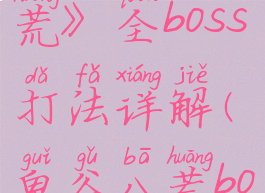 荒》全boss
dǎ fǎ xiáng jiě
打法详解(
guǐ gǔ bā huāng
鬼谷八荒bo